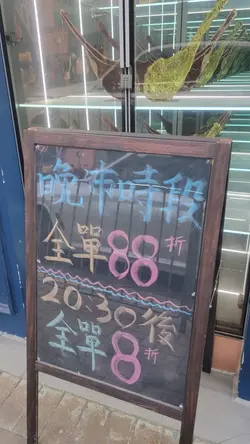 晚市時段
全單88折
20:30後
全單8折